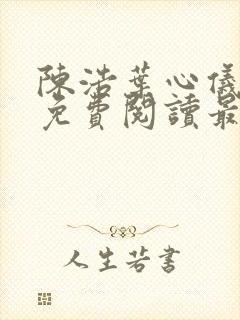 陳浩葉心儀
免費閱讀最
人生若書